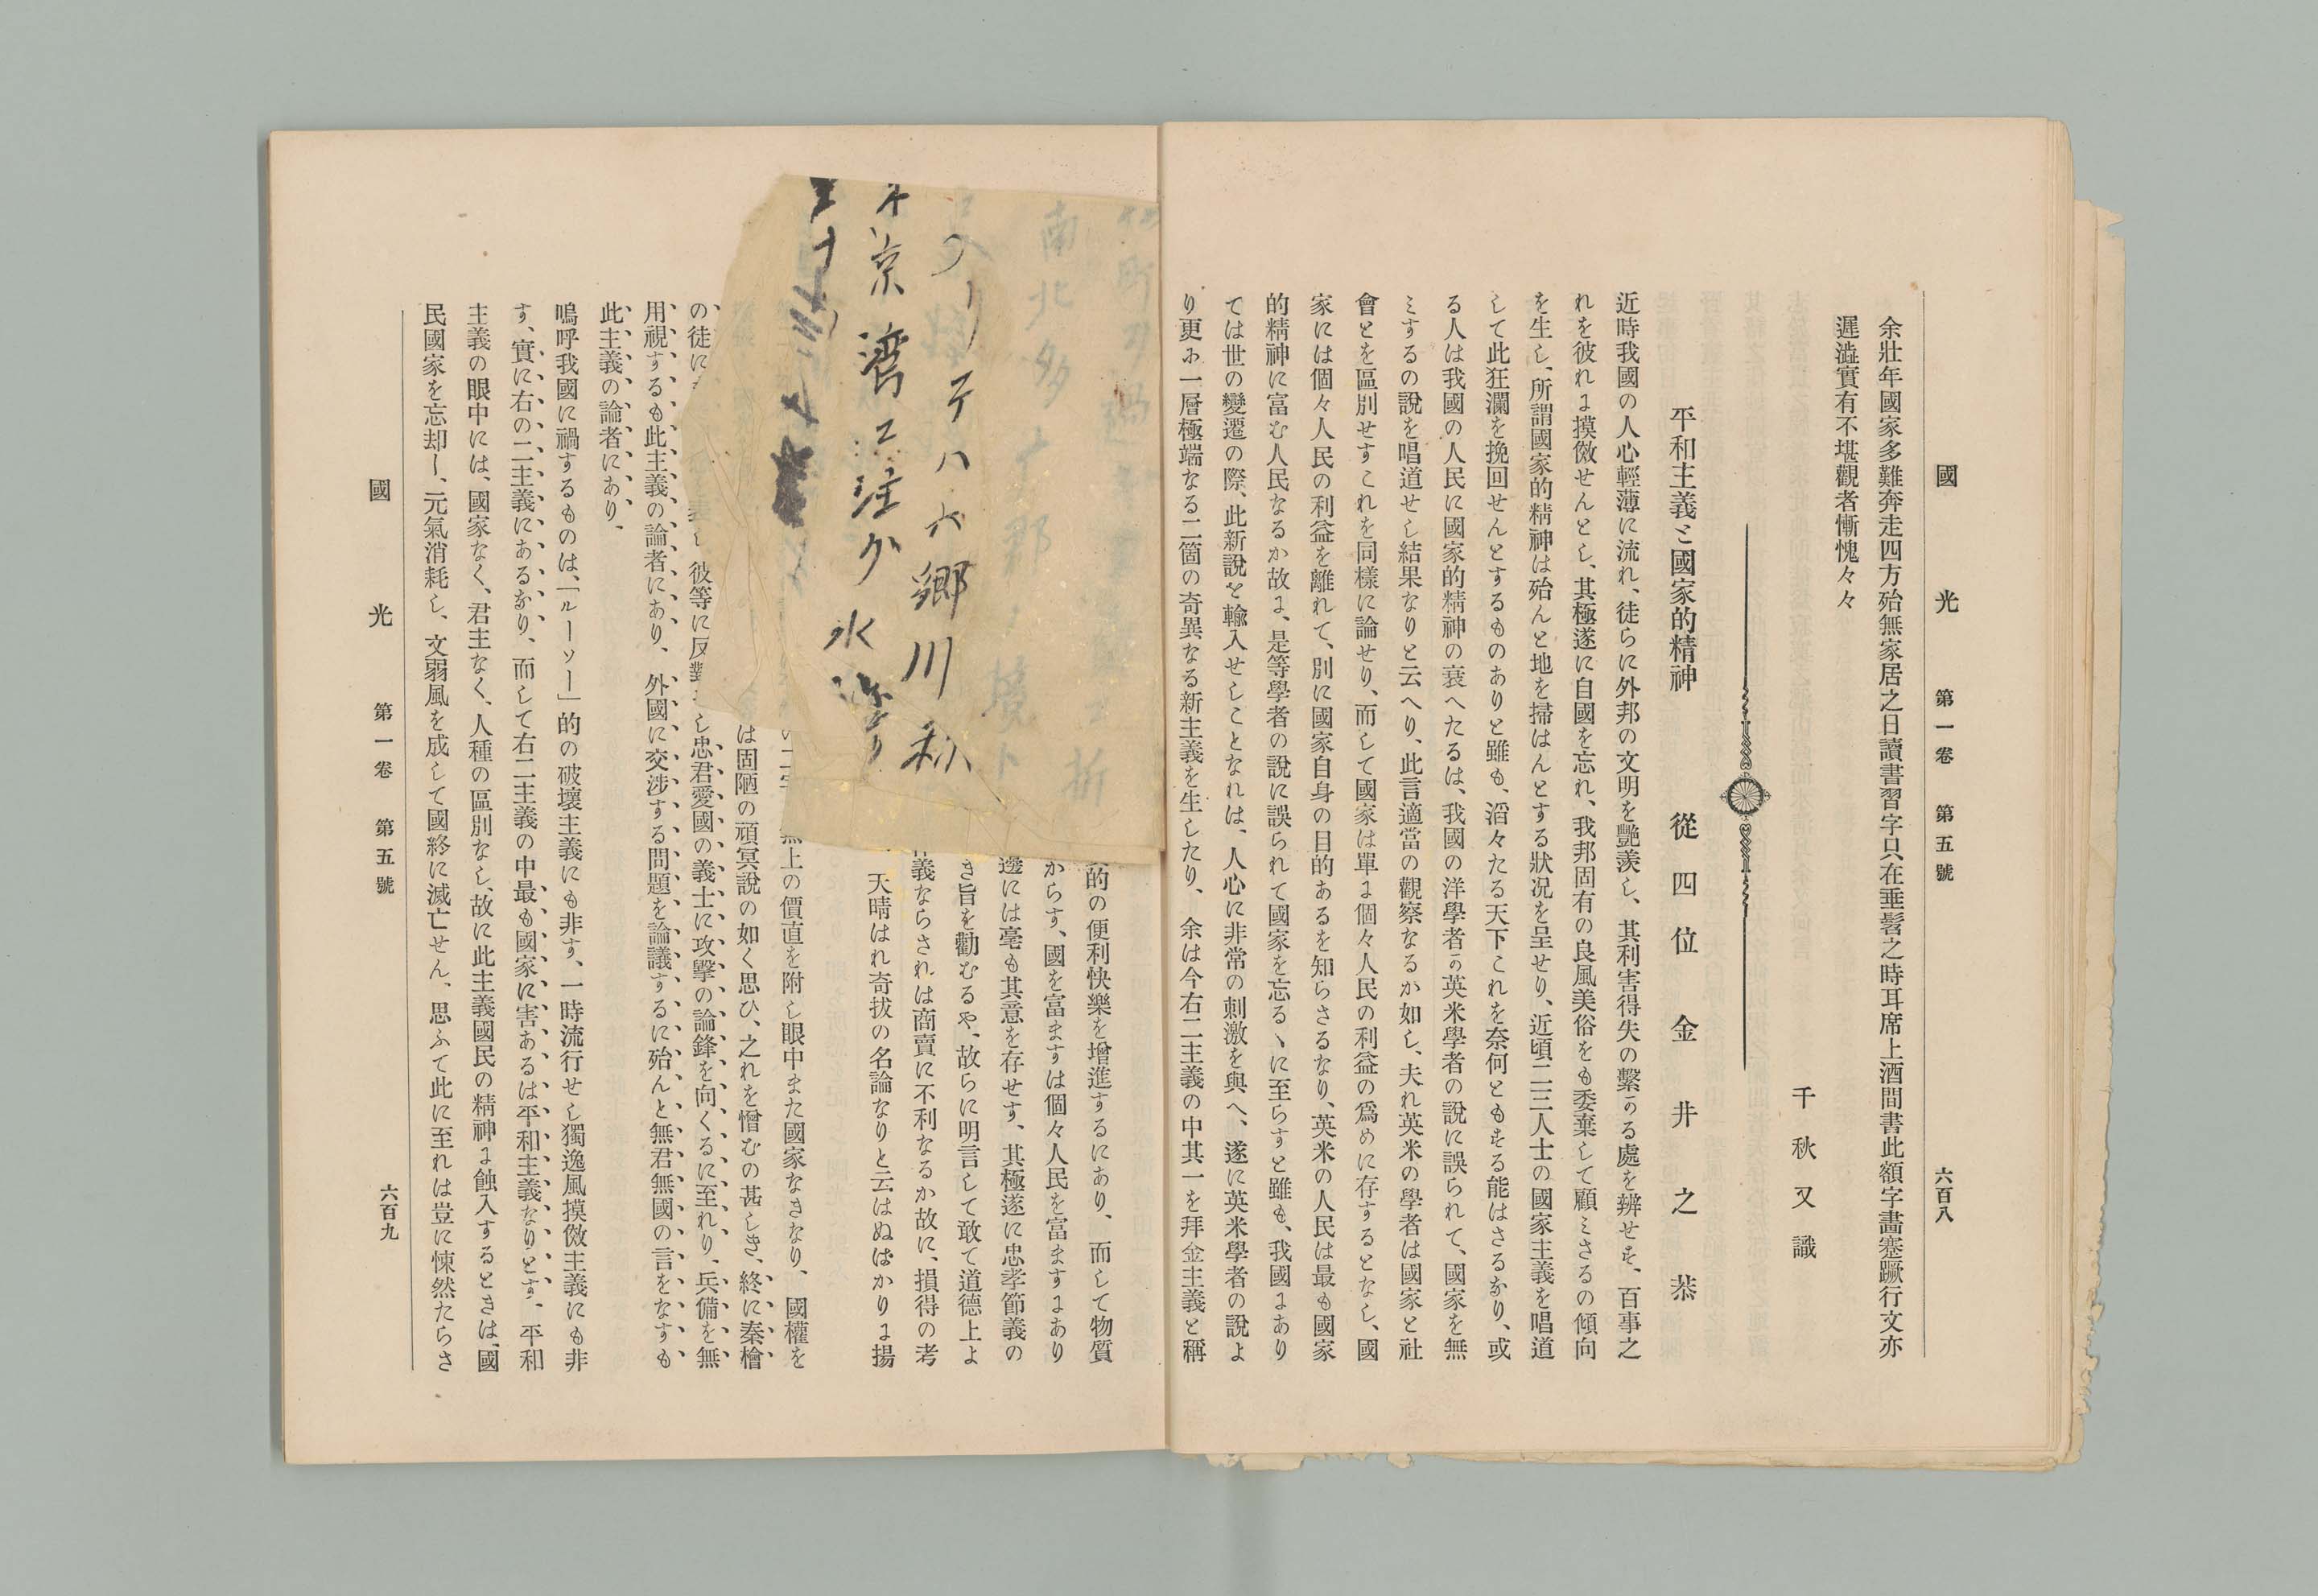 國光 第一卷 第五號 六百八
余壯年國家多難奔走四方殆無家居之日讀書習字只在垂髫之時耳席上酒間書此額字畵蹇蹶行文亦
遲澁實有不堪觀者慚愧々々
千秋又識
平和主義と國家的精神 從四位 金井之恭
近時我國の人心輕薄に流れ、徒らに外邦の文明を艶羨し、其利害得失の繫かる處を辨せす、百事之
れを彼れに摸倣せんとし、其極遂に自國を忘れ、我邦固有の良風美俗をも委棄して顧みさるの傾向
を生し、所謂國家的精神は殆んと地を掃はんとする狀况を呈せり、近頃二三人士の國家主義を唱道
して此狂瀾を挽回せんとするものありと雖も、滔々たる天下これを奈何ともする能はさるなり、或
る人は我國の人民に國家的精神の衰へたるは、我國の洋學者か英米學者の說に誤られて、國家を無
みするの說を唱道せし結果なりと云へり、此言適當の觀察なるか如し、夫れ英米の學者は國家と社
會とを區別せすこれを同樣に論せり、而して國家は單に個々人民の利益の爲めに存するとなし、國
家には個々人民の利益を離れて、別に國家自身の目的あるを知らさるなり、英米の人民は最も國家
的精神に富む人民なるか故に、是等學者の說に誤られて國家を忘るゝに至らすと雖も、我國にあり
ては世の變遷の際、此新說を輸入せしことなれは、人心に非常の刺激を與へ、遂に英米學者の說よ
り更に一層極端なる二箇の奇異なる新主義を生したり、余は今右二主義の中其一を拜金主義と稱
的の便利快樂を增進するにあり、而して物質
からす、國を富ますは個々人民を富ますにあり
邊には毫も其意を存せす、其極遂に忠孝節義の
き旨を勸むるや、故らに明言して敢て道德上よ
義ならされは商賣に不利なるか故に、損得の考
天晴はれ奇拔の名論なりと云はぬばかりに揚
無上の價直を附し眼中また國家なきなり、國權を
は固陋の頑冥說の如く思ひ、之れを憎むの甚しき、終に秦檜
の徒に
彼等に反對せし忠君愛國の義士に攻擊の論鋒を向くるに至れり、兵備を無
用視するも此主義の論者にあり、外國に交涉する問題を論議するに殆んと無君無國の言をなすも
此主義の論者にあり、
嗚呼我國に禍するものは、「ルーソー」的の破壞主義にも非す、一時流行せし獨逸風摸倣主義にも非
す、實に右の二主義にあるなり、而して右二主義の中最も國家に害あるは平和主義なりとす、平和
主義の眼中には、國家なく、君主なく、人種の區別なし、故に此主義國民の精神に蝕入するときは、國
民國家を忘却し、元氣消耗し、文弱風を成して國終に滅亡せん、思ふて此に至れは豈に悚然たらさ
國光 第一卷 第五號 六百九
南北多
郡ノ境
折
テハ六郷川
京灣ニ注ク水